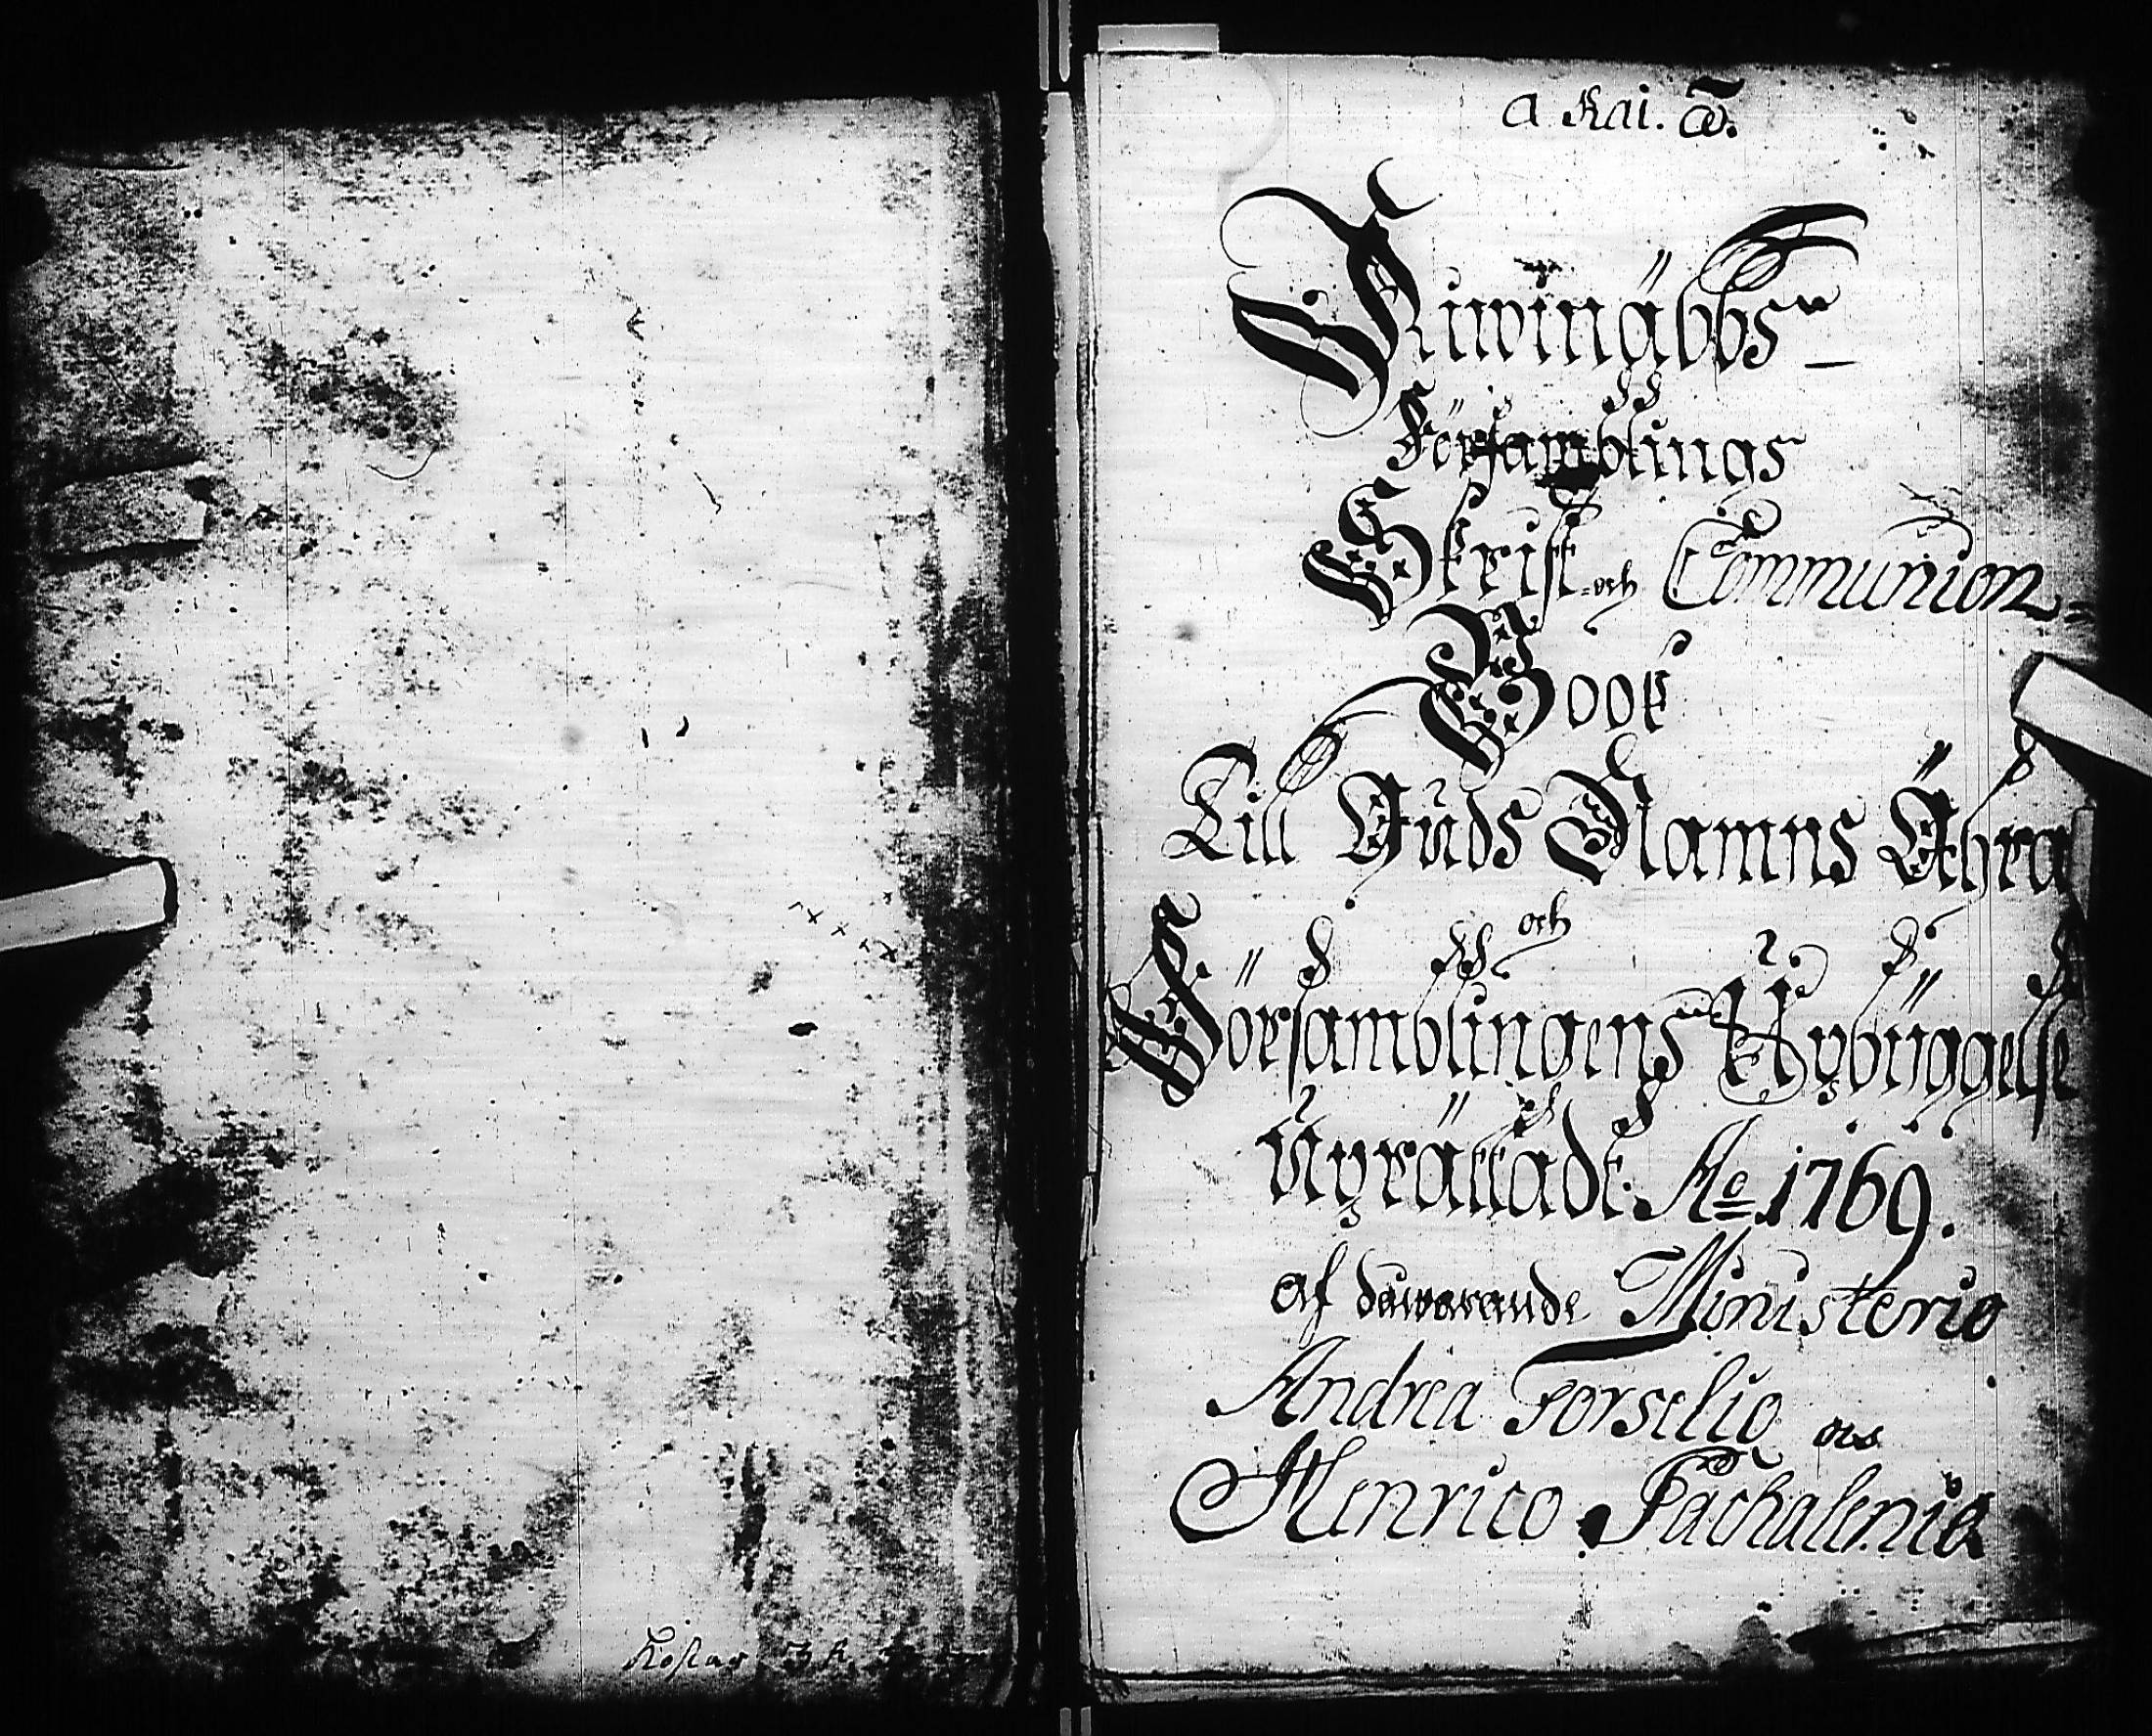 Kostar 3
a kai. ω̃.
Kiwinäbbs
Församblings
Skrift och Communion=
Book
Till Guds Namns Ähra
och
Församblingens Upbÿggelse
Uprättadt A:o 1769.
af dåwarande Ministerio
Andrea Forselio och
Henrico Pachalenio